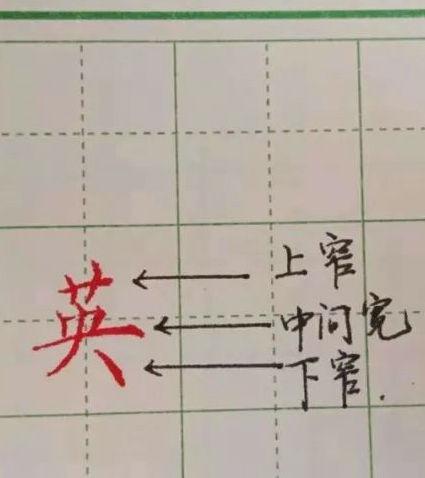 英
上窄
中问宽
下窄.